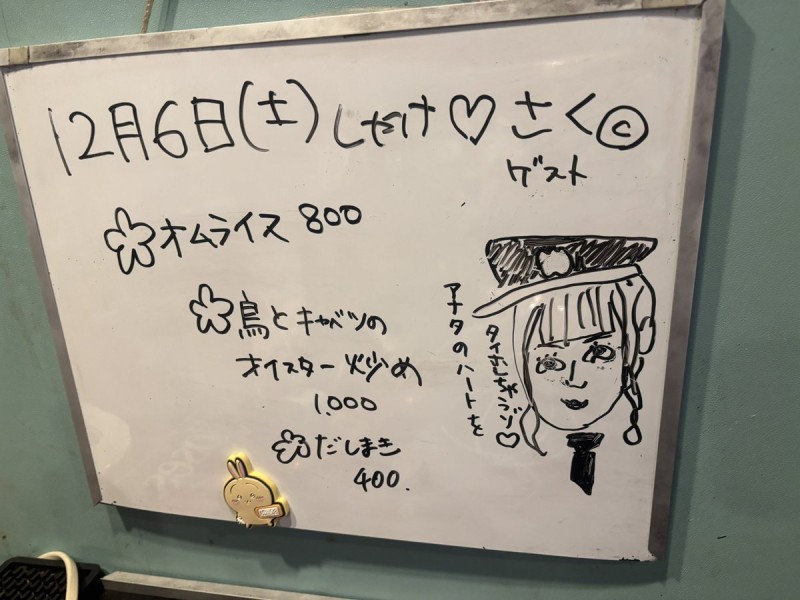 12月6日(土)しだけ♡さく©
ゲスト
オムライス 800
鳥とキャベツの
オイスター炒め
1,000
だしまき
400.
アナタのハートを
タイホしちゃうゾ♡